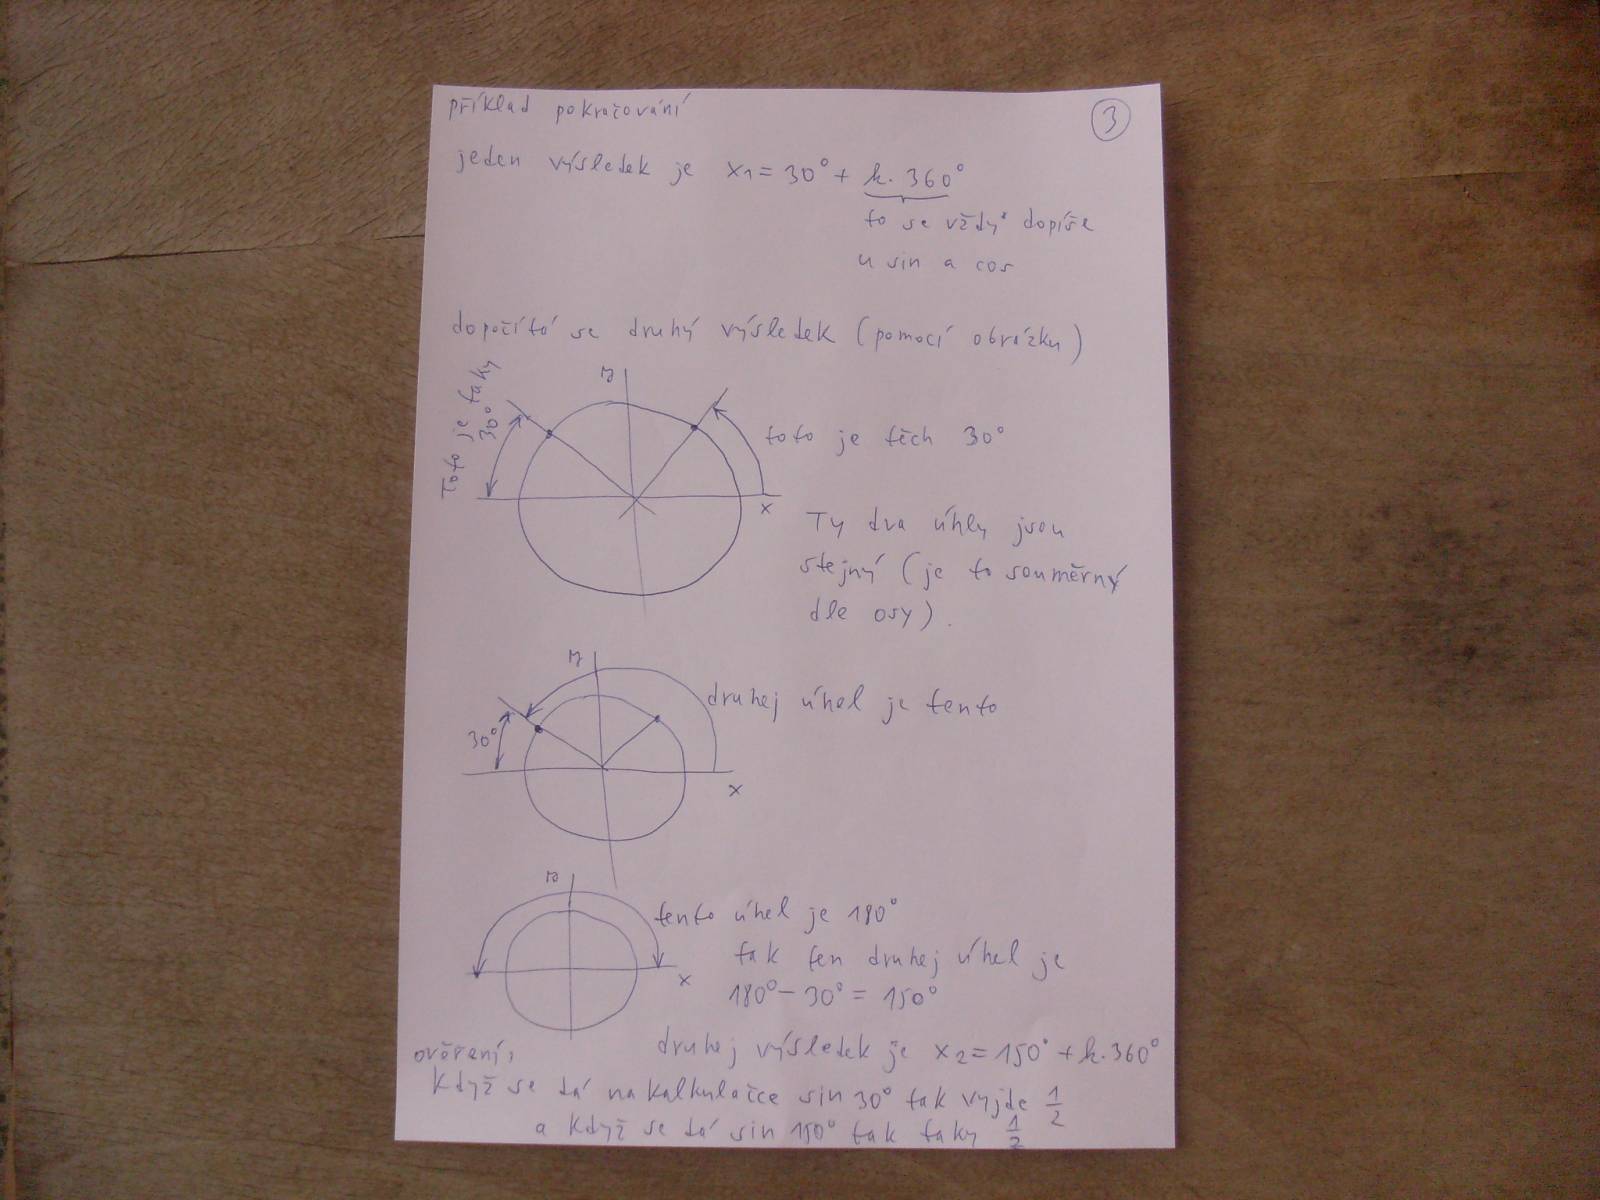 příklad pokračování
3
jeden výsledek je x1 = 30° + k. 360°
to se vždy dopíše
u sin a cos
dopočítá se druhý výsledek (pomocí obrázku)
y
Toto je taky
30°
toto je těch 30°
x
Ty dva úhly jsou
stejný (je to souměrný
dle osy).
y
druhej úhel je tento
30°
x
y
tento úhel je 180°
tak ten druhej úhel je
x
180° - 30° = 150°
druhej výsledek je x2 = 150° + k. 360°
ověření:
Když se dá na kalkulačce sin 30° tak vyjde 1/2
a když se dá sin 150° tak taky 1/2